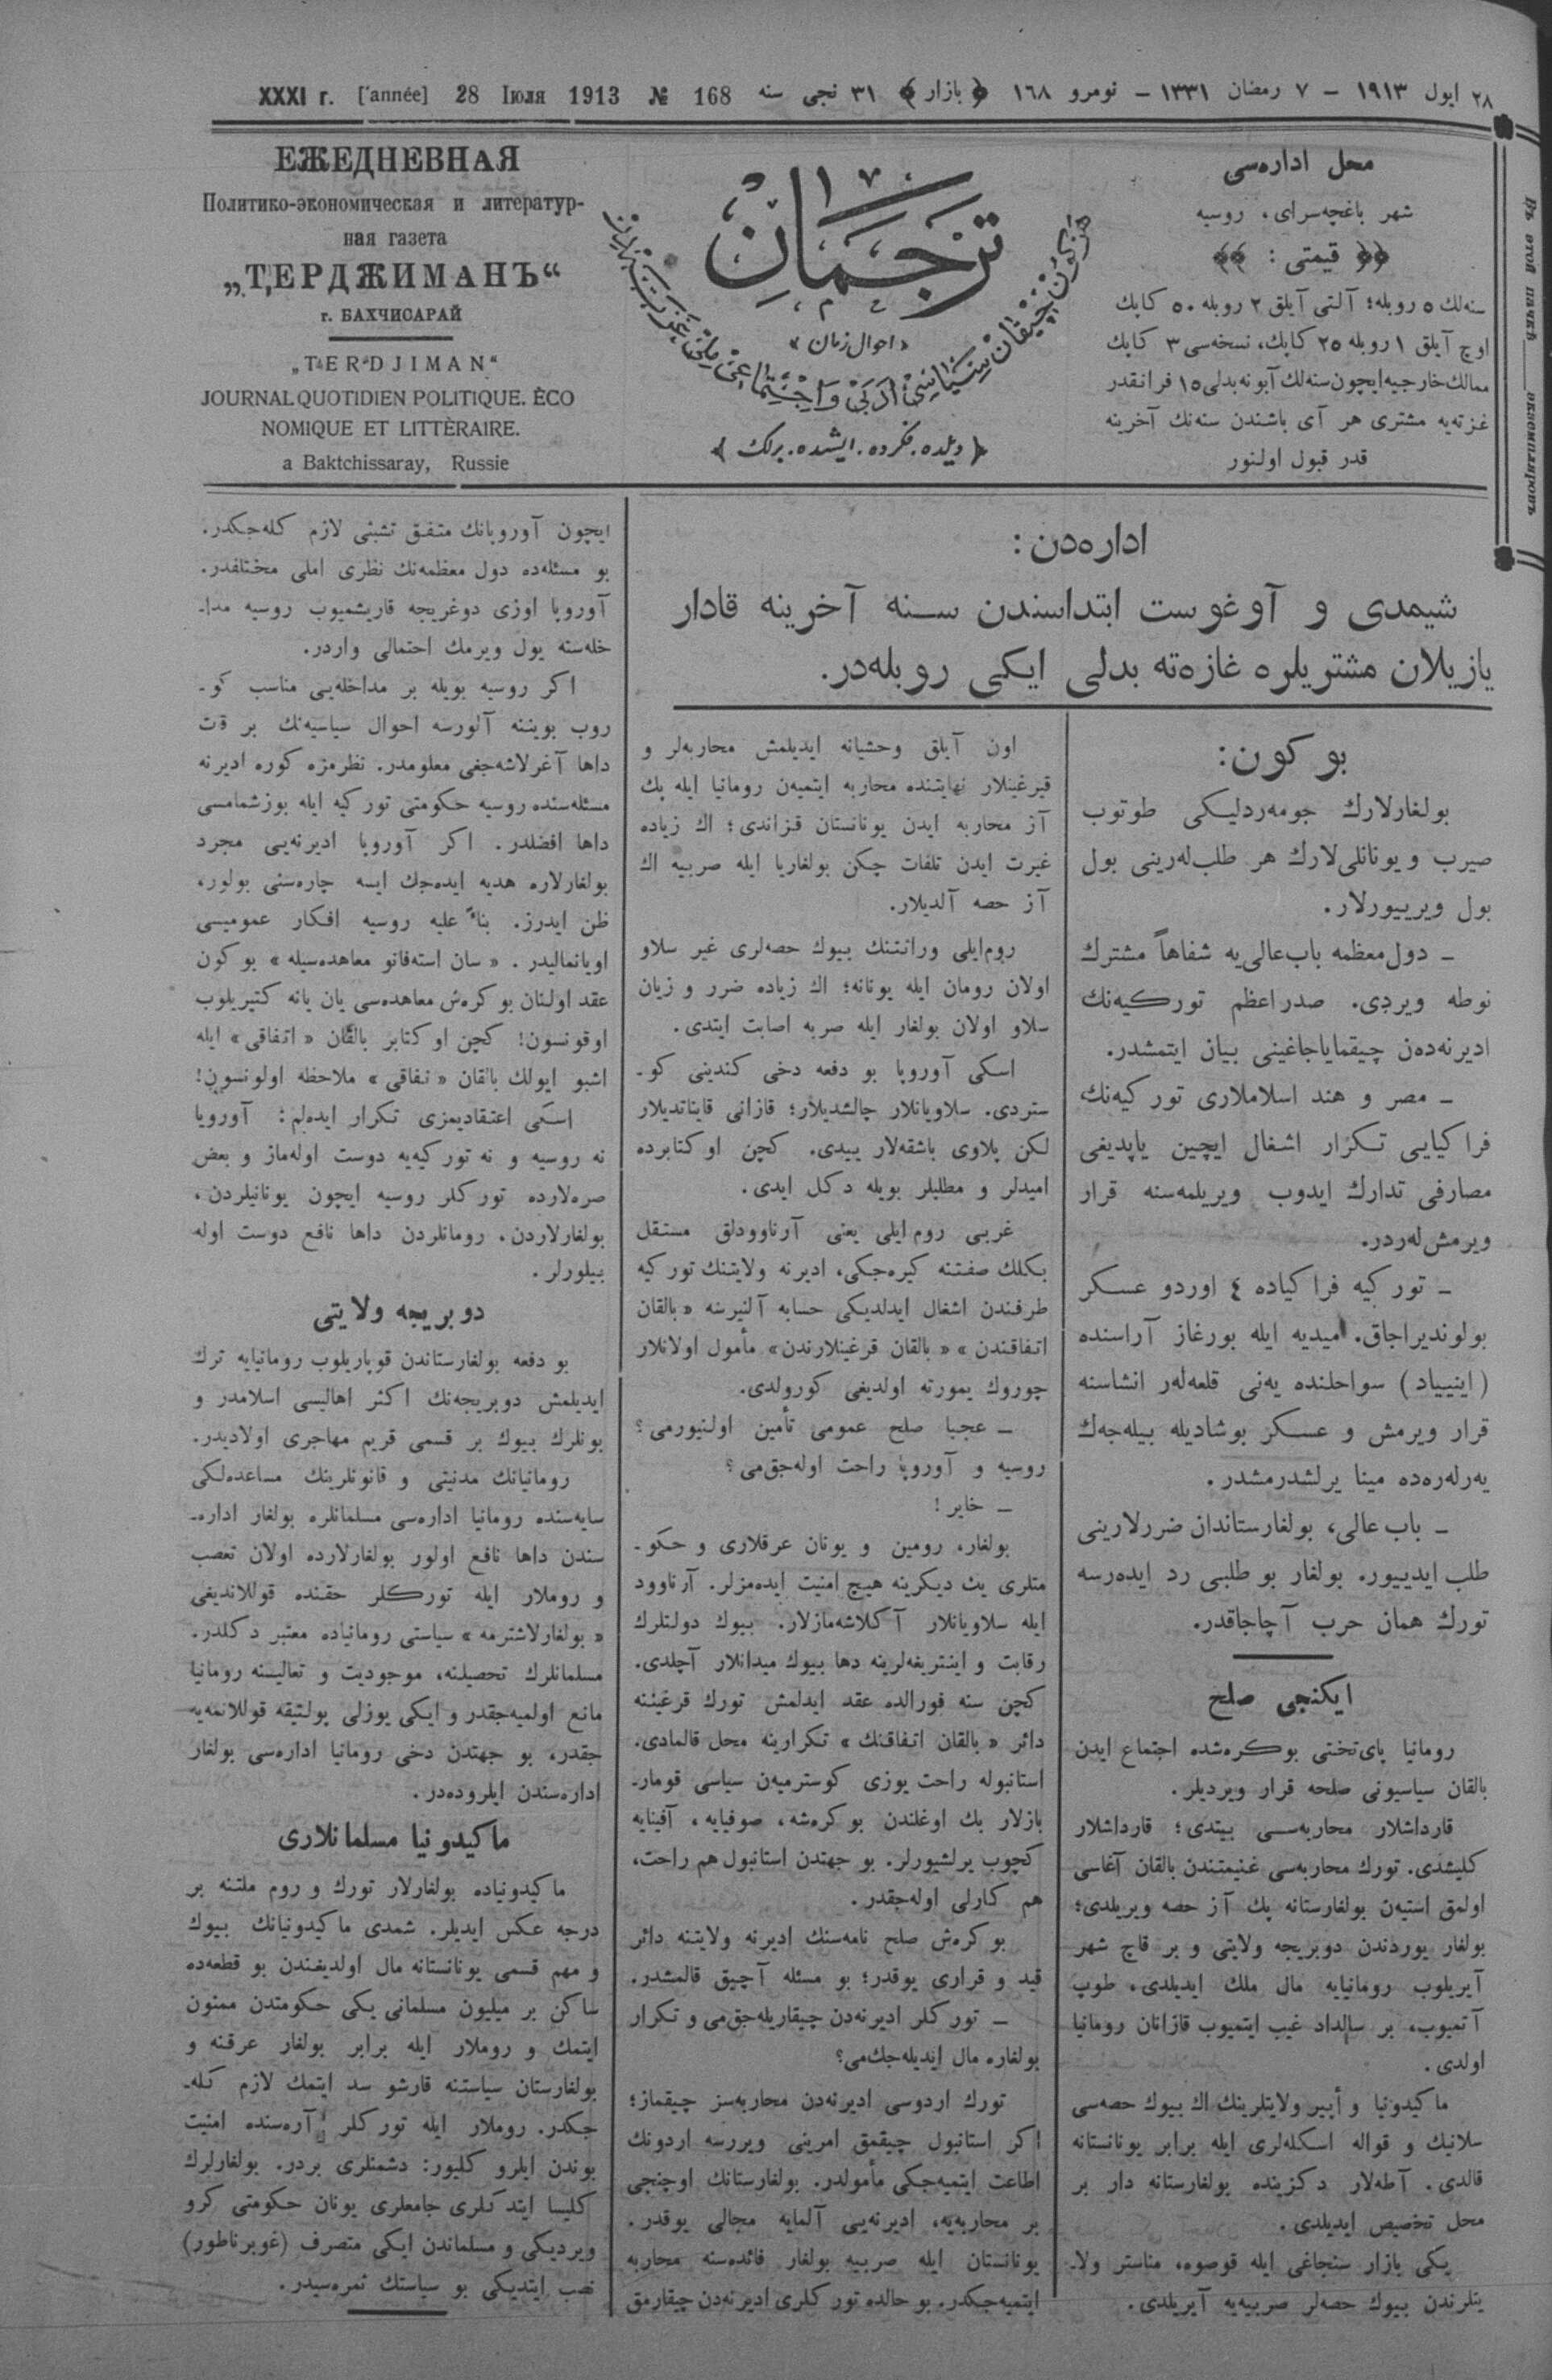 ٢٨ ایول ١٩١٣ – ٧ رمضان ١٣٣١ – نومرو ١٦٨ ﴿ بازار ﴾ ٣١ نجی سنه XXXI г. [année] 28 Іюля 1913 № 168
محل اداره‌سی
شهر باغچه‌سرای، روسیه
﴿﴿ قیمتی : ﴾﴾
سنه‌لك ٥ روبله؛ آلتی آیلق ٢ روبله ٥٠ كاپك
اوچ آیلق ١ روبله ٢٥ كاپك، نسخه‌سی ٣ كاپك
ممالك خارجیه‌ایچون سنه‌لك آبونه بدلی ١٥ فرانقدر
غزته‌یه مشتری هر آی باشندن سنه‌نك آخرینه
قدر قبول اولنور
ترجمان
« احوال زمان »
هر كون چیقان سیاسی، ادبی و اجتماعی ملی غزته‌در
﴿ دیلده. فكرده. ایشده. برلك ﴾
ЕЖЕДНЕВНАЯ
Политико-экономическая и литератур-
ная газета
„ТЕРДЖИМАНЪ“
г. БАХЧИСАРАЙ
„TERDJIMAN“
JOURNAL QUOTIDIEN POLITIQUE. ÈCO
NOMIQUE ET LITTÈRAIRE.
a Baktchissaray, Russie
Въ этой пачкѣ ____ экземпляровъ
اداره‌دن :
شیمدی و آوغوست ابتداسندن سنه آخرینه قادار
یازیلان مشتریلره غازه‌ته بدلی ایكی روبله‌در.
بو كون:
بولغارلارك جومه‌ردلیكی طوتوب
صیرب و یونانلی‌لارك هر طلب‌له‌رینی بول
بول ویرییورلار.
– دول معظمه باب‌عالی‌یه شفاهاً مشترك
نوطه ویردی. صدراعظم توركیه‌نك
ادیرنه‌ده‌ن چیقمایاجاغینی بیان ایتمشدر.
– مصر و هند اسلاملاری توركیه‌نك
فراكیایی تكرار اشغال ایچین یاپدیغی
مصارفی تدارك ایدوب ویریلمه‌سنه قرار
ویرمش‌له‌ردر.
– توركیه فراكیاده ٤ اوردو عسكر
بولوندیراجاق. میدیه ایله بورغاز آراسنده
(اینییاد) سواحلنده یه‌نی قلعه‌له‌ر انشاسنه
قرار ویرمش و عسكر بوشادیله بیله‌جه‌ك
یه‌رله‌ره‌ده مینا یرلشدرمشدر.
– باب عالی، بولغارستاندان ضررلارینی
طلب ایدییور. بولغار بو طلبی رد ایده‌رسه
تورك همان حرب آچاجاقدر.
ایكنجی صلح
رومانیا پای‌تختی بوكره‌شده اجتماع ایدن
بالقان سیاسیونی صلحه قرار ویردیلر.
قارداشلار محاربه‌سی بیتدی؛ قارداشلار
كلیشدی. تورك محاربه‌سی غنیمتندن بالقان آغاسی
اولمق استیه‌ن بولغارستانه پك آز حصه ویریلدی؛
بولغار یوردندن دوبریجه ولایتی و بر قاچ شهر
آیریلوب رومانیایه مال ملك ایدیلدی، طوپ
آتمیوب، بر سالداد غیب ایتمیوب قازانان رومانیا
اولدی.
ماكیدونیا و أپیر ولایتلرینك اك بیوك حصه‌سی
سلانیك و قواله اسكله‌لری ایله برابر یونانستانه
قالدی. آطه‌لار دكزینده بولغارستانه دار بر
محل تخصیص ایدیلدی.
یكی بازار سنجاغی ایله قوصوه، مناستر ولا-
یتلرندن بیوك حصه‌لر صربیه‌یه آیریلدی.
اون آیلق وحشیانه ایدیلمش محاربه‌لر و
قیرغینلار نهایتنده محاربه ایتمیه‌ن رومانیا ایله پك
آز محاربه ایدن یونانستان قزاندی؛ اك زیاده
غیرت ایدن تلفات چكن بولغاریا ایله صربیه اك
آز حصه آلدیلار.
روم‌ایلی وراثتنك بیوك حصه‌لری غیر سلاو
اولان رومان ایله یونانه؛ اك زیاده ضرر و زیان
سلاو اولان بولغار ایله صربه اصابت ایتدی.
اسكی آوروپا بو دفعه دخی كندینی كو-
ستردی. سلاویانلار چالشدیلار؛ قازانی قایناتدیلار
لكن پلاوی باشقه‌لار ییدی. كچن اوكتابرده
امیدلر و مطلبلر بویله دكل ایدی.
غربی روم‌ایلی یعنی آرناوودلق مستقل
بكلك صفتنه كیره‌جكی، ادیرنه ولایتنك توركیه
طرفندن اشغال ایدلدیكی حسابه آلنیرسه «بالقان
اتفاقندن» «بالقان قرغینلارندن» مأمول اولانلار
چوروك یمورته اولدیغی كورولدی.
– عجبا صلح عمومی تأمین اولنیورمی؟
روسیه و آوروپا راحت اوله‌جق‌می؟
– خایر!
بولغار، رومین و یونان عرقلاری و حكو-
متلری بث دیكرینه هیچ امنیت ایده‌مزلر. آرناوود
ایله سلاویانلار آكلاشه‌مازلار. بیوك دولتلرك
رقابت و اینتریغه‌لرینه دها بیوك میدانلار آچلدی.
كچن سنه فورالده عقد ایدلمش تورك قرغیننه
دائر «بالقان اتفاقنك» تكرارینه محل قالمادی.
استانبوله راحت یوزی كوسترمیه‌ن سیاسی قومار-
بازلار بك اوغلندن بوكره‌شه، صوفیایه، آفینایه
كچوب یرلشیورلر. بو جهتدن استانبول هم راحت،
هم كارلی اوله‌جقدر.
بوكره‌ش صلح نامه‌سنك ادیرنه ولایتنه دائر
قید و قراری یوقدر؛ بو مسئله آچیق قالمشدر.
– توركلر ادیرنه‌دن چیقاریله‌جق‌می و تكرار
بولغاره مال ایدیله‌جك‌می؟
تورك اردوسی ادیرنه‌دن محاربه‌سز چیقماز؛
اكر استانبول چیقمق امرینی ویررسه اردونك
اطاعت ایتمیه‌جكی مأمولدر. بولغارستانك اوچنجی
بر محاربه‌یه، ادیرنه‌یی آلمایه مجالی یوقدر.
یونانستان ایله صربیه بولغار فائده‌سنه محاربه
ایتمیه‌جكدر. بو حالده توركلری ادیرنه‌دن چیقارمق
ایچون آوروپانك متفق تشبثی لازم كله‌جكدر.
بو مسئله‌ده دول معظمه‌نك نظری املی مختلفدر.
آوروپا اوزی دوغریجه قاریشمیوب روسیه مدا-
خله‌سنه یول ویرمك احتمالی واردر.
اكر روسیه بویله بر مداخله‌یی مناسب كو-
روب بویننه آلورسه احوال سیاسیه‌نك بر قت
داها آغرلاشه‌جغی معلومدر. نظرمزه كوره ادیرنه
مسئله‌سنده روسیه حكومتی توركیه ایله بوزشمامسی
داها افضلدر. اكر آوروپا ادیرنه‌یی مجرد
بولغارلاره هدیه ایده‌جك ایسه چاره‌سنی بولور،
ظن ایدرز. بناءً علیه روسیه افكار عمومیسی
اویانمالیدر. «سان استه‌فانو معاهده‌سیله» بو كون
عقد اولنان بوكره‌ش معاهده‌سی یان یانه كتیریلوب
اوقونسون! كچن اوكتابر بالقان «اتفاقی» ایله
اشبو ایولك بالقان «نفاقی» ملاحظه اولونسون!
اسكی اعتقادیمزی تكرار ایده‌لم: آوروپا
نه روسیه و نه توركیه‌یه دوست اوله‌ماز و بعض
صره‌لارده توركلر روسیه ایچون یونانیلردن،
بولغارلاردن، رومانلردن داها نافع دوست اوله
بیلورلر.
دوبریجه ولایتی
بو دفعه بولغارستاندن قوپاریلوب رومانیایه ترك
ایدیلمش دوبریجه‌نك اكثر اهالیسی اسلامدر و
بونلرك بیوك بر قسمی قریم مهاجری اولادیدر.
رومانیانك مدنیتی و قانونلرینك مساعده‌لكی
سایه‌سنده رومانیا اداره‌سی مسلمانلره بولغار اداره-
سندن داها نافع اولور بولغارلارده اولان تعصب
و روملار ایله توركلر حقنده قوللاندیغی
«بولغارلاشترمه» سیاستی رومانیاده معتبر دكلدر.
مسلمانلرك تحصیلنه، موجودیت و تعالیسنه رومانیا
مانع اولمیه‌جقدر و ایكی یوزلی پولتیقه قوللانمه‌یه-
جقدر، بو جهتدن دخی رومانیا اداره‌سی بولغار
اداره‌سندن ایلروده‌در.
ماكیدونیا مسلمانلاری
ماكیدونیاده بولغارلار تورك و روم ملتنه بر
درجه عكس ایدیلر. شمدی ماكیدونیانك بیوك
و مهم قسمی یونانستانه مال اولدیغندن بو قطعه‌ده
ساكن بر میلیون مسلمانی یكی حكومتدن ممنون
ایتمك و روملار ایله برابر بولغار عرقنه و
بولغارستان سیاستنه قارشو سد ایتمك لازم كله-
جكدر. روملار ایله توركلر آره‌سنده امنیت
بوندن ایلرو كلیور: دشمنلری بردر. بولغارلرك
كلیسا ایتدكلری جامعلری یونان حكومتی كرو
ویردیكی و مسلماندن ایكی متصرف (غوبرناطور)
نصب ایتدیكی بو سیاستك ثمره‌سیدر.